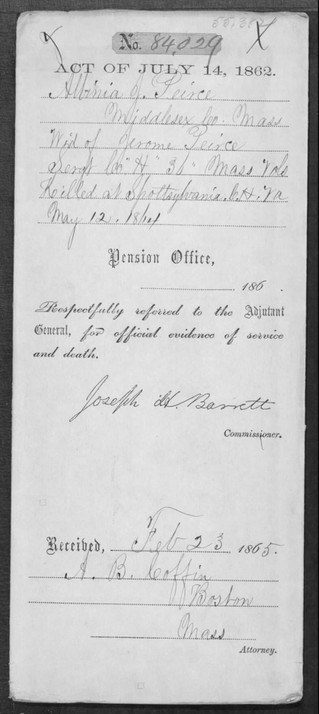 No. 84,029
ACT OF JULY 14, 1862.
Albinia J. Peirce
Middlesex Co. Mass
Wid of Jerome Peirce
Sergt Co "H" 36" Mass Vols
Killed at Spottsylvania. C.H. Va
May 12. 1864
Pension Office,
186 .
Respectfully referred to the Adjutant
General, for official evidence of service
and death.
Joseph H. Barrett
Commissioner.
Received, Feb 23 1865.
A. B. Coffin
Boston
Mass
Attorney.